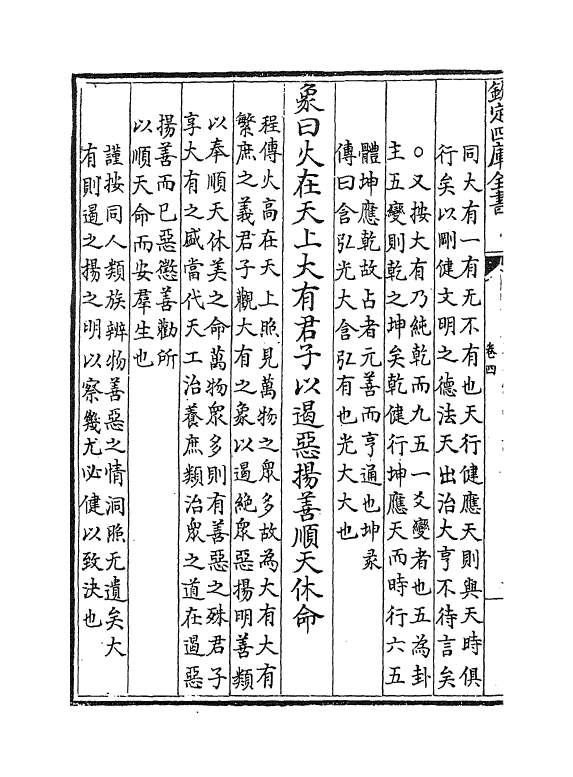 欽定四庫全書
卷四
同大有一有无不有也天行健應天則與天時俱
行矣以剛健文明之德法天出治大亨不待言矣
○又按大有乃純乾而九五一爻變者也五為卦
主五變則乾之坤矣乾健行坤應天而時行六五
體坤應乾故占者元善而亨通也坤彖
傳曰含弘光大含弘有也光大大也
象曰火在天上大有君子以遏惡揚善順天休命
程傳火高在天上照見萬物之眾多故為大有大有
繁庶之義君子觀大有之象以遏絶眾惡揚明善類
以奉順天休美之命萬物眾多則有善惡之殊君子
享大有之盛當代天工治養庶類治眾之道在遏惡
揚善而已惡懲善勸所
以順天命而安羣生也
謹按同人類族辨物善惡之情洞照无遺矣大
有則遏之揚之明以察幾尤必健以致決也